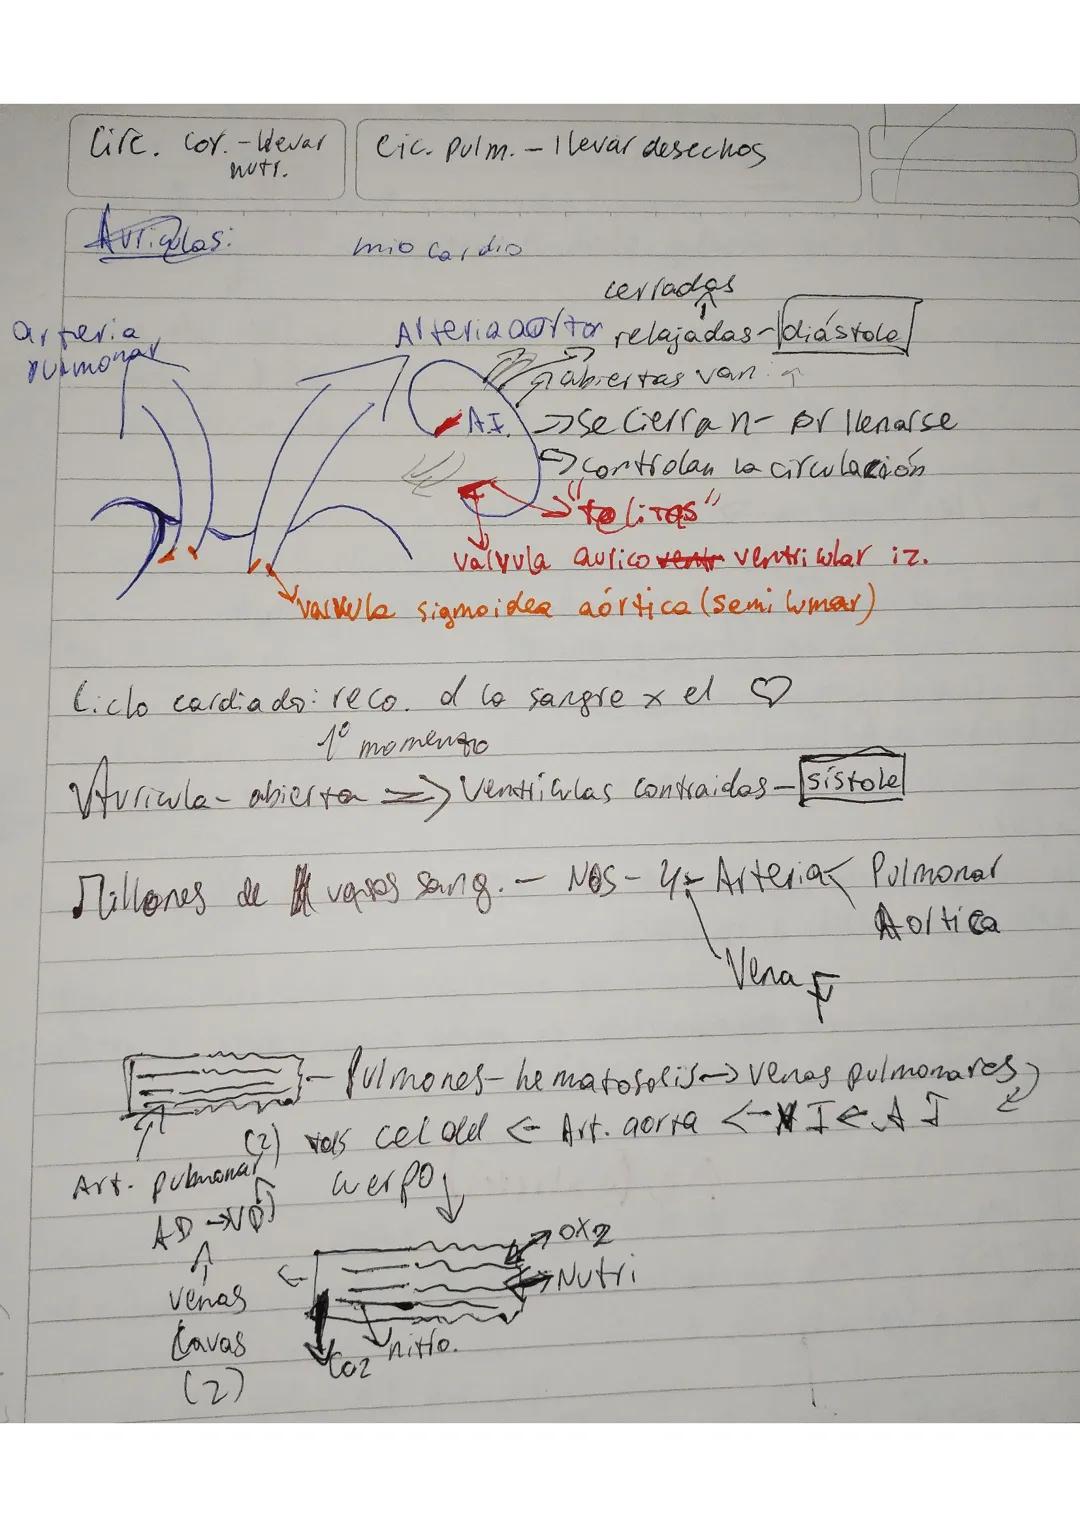 Circ. cor. - llevar nutr.
Cic. pulm. - llevar desechos
Aurículas:
miocardio
cerradas
arteria pulmonar
Arteria aortor
relajadas - diástole
abiertas van
AI.
Se cierran - pr llenarse
controlan la circulación
"telitas"
valvula aurico ventricular iz.
valvula sigmoidea aórtica (semilumar)
Ciclo cardiado: reco. d la sangre x el ♡
1° momento
Aurícula - abierta => Ventrículas contraidas - sístole
Millones de vasos sang. - NOS - 4 - Arteria < Pulmonar
Aortica
Vena
- Pulmones - hematosolis -> venas pulmonares
(2) cel del <- Art. aorta <- VI <- AI
Art. pulmonar
cuerpo
AD -> VD
ox2
Nutri
venas
cavas
(2)
nitro.
Co2